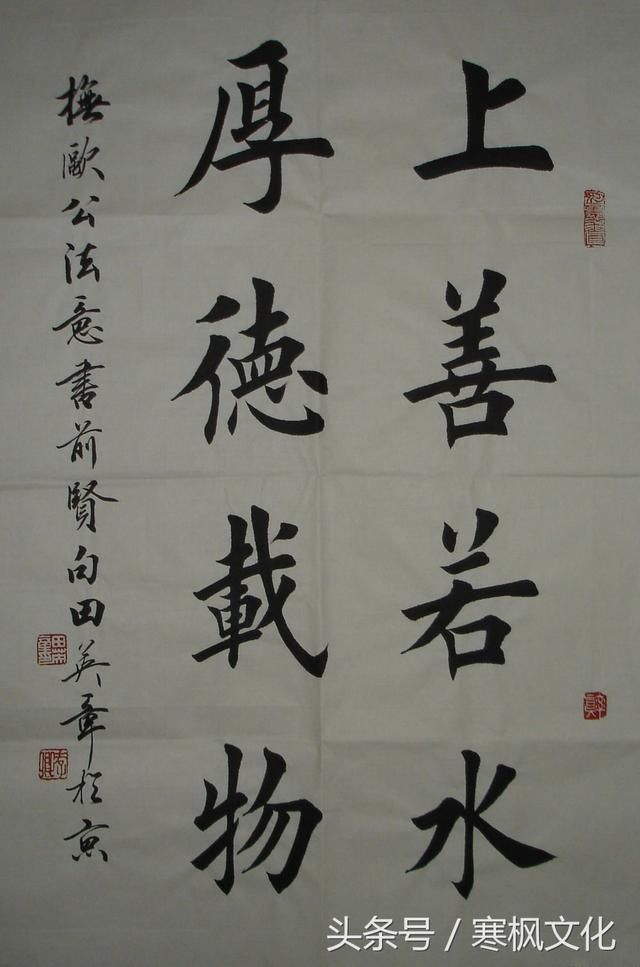 上善若水
厚德載物
撫歐公法意書前賢句田英章於京
头条号／寒枫文化